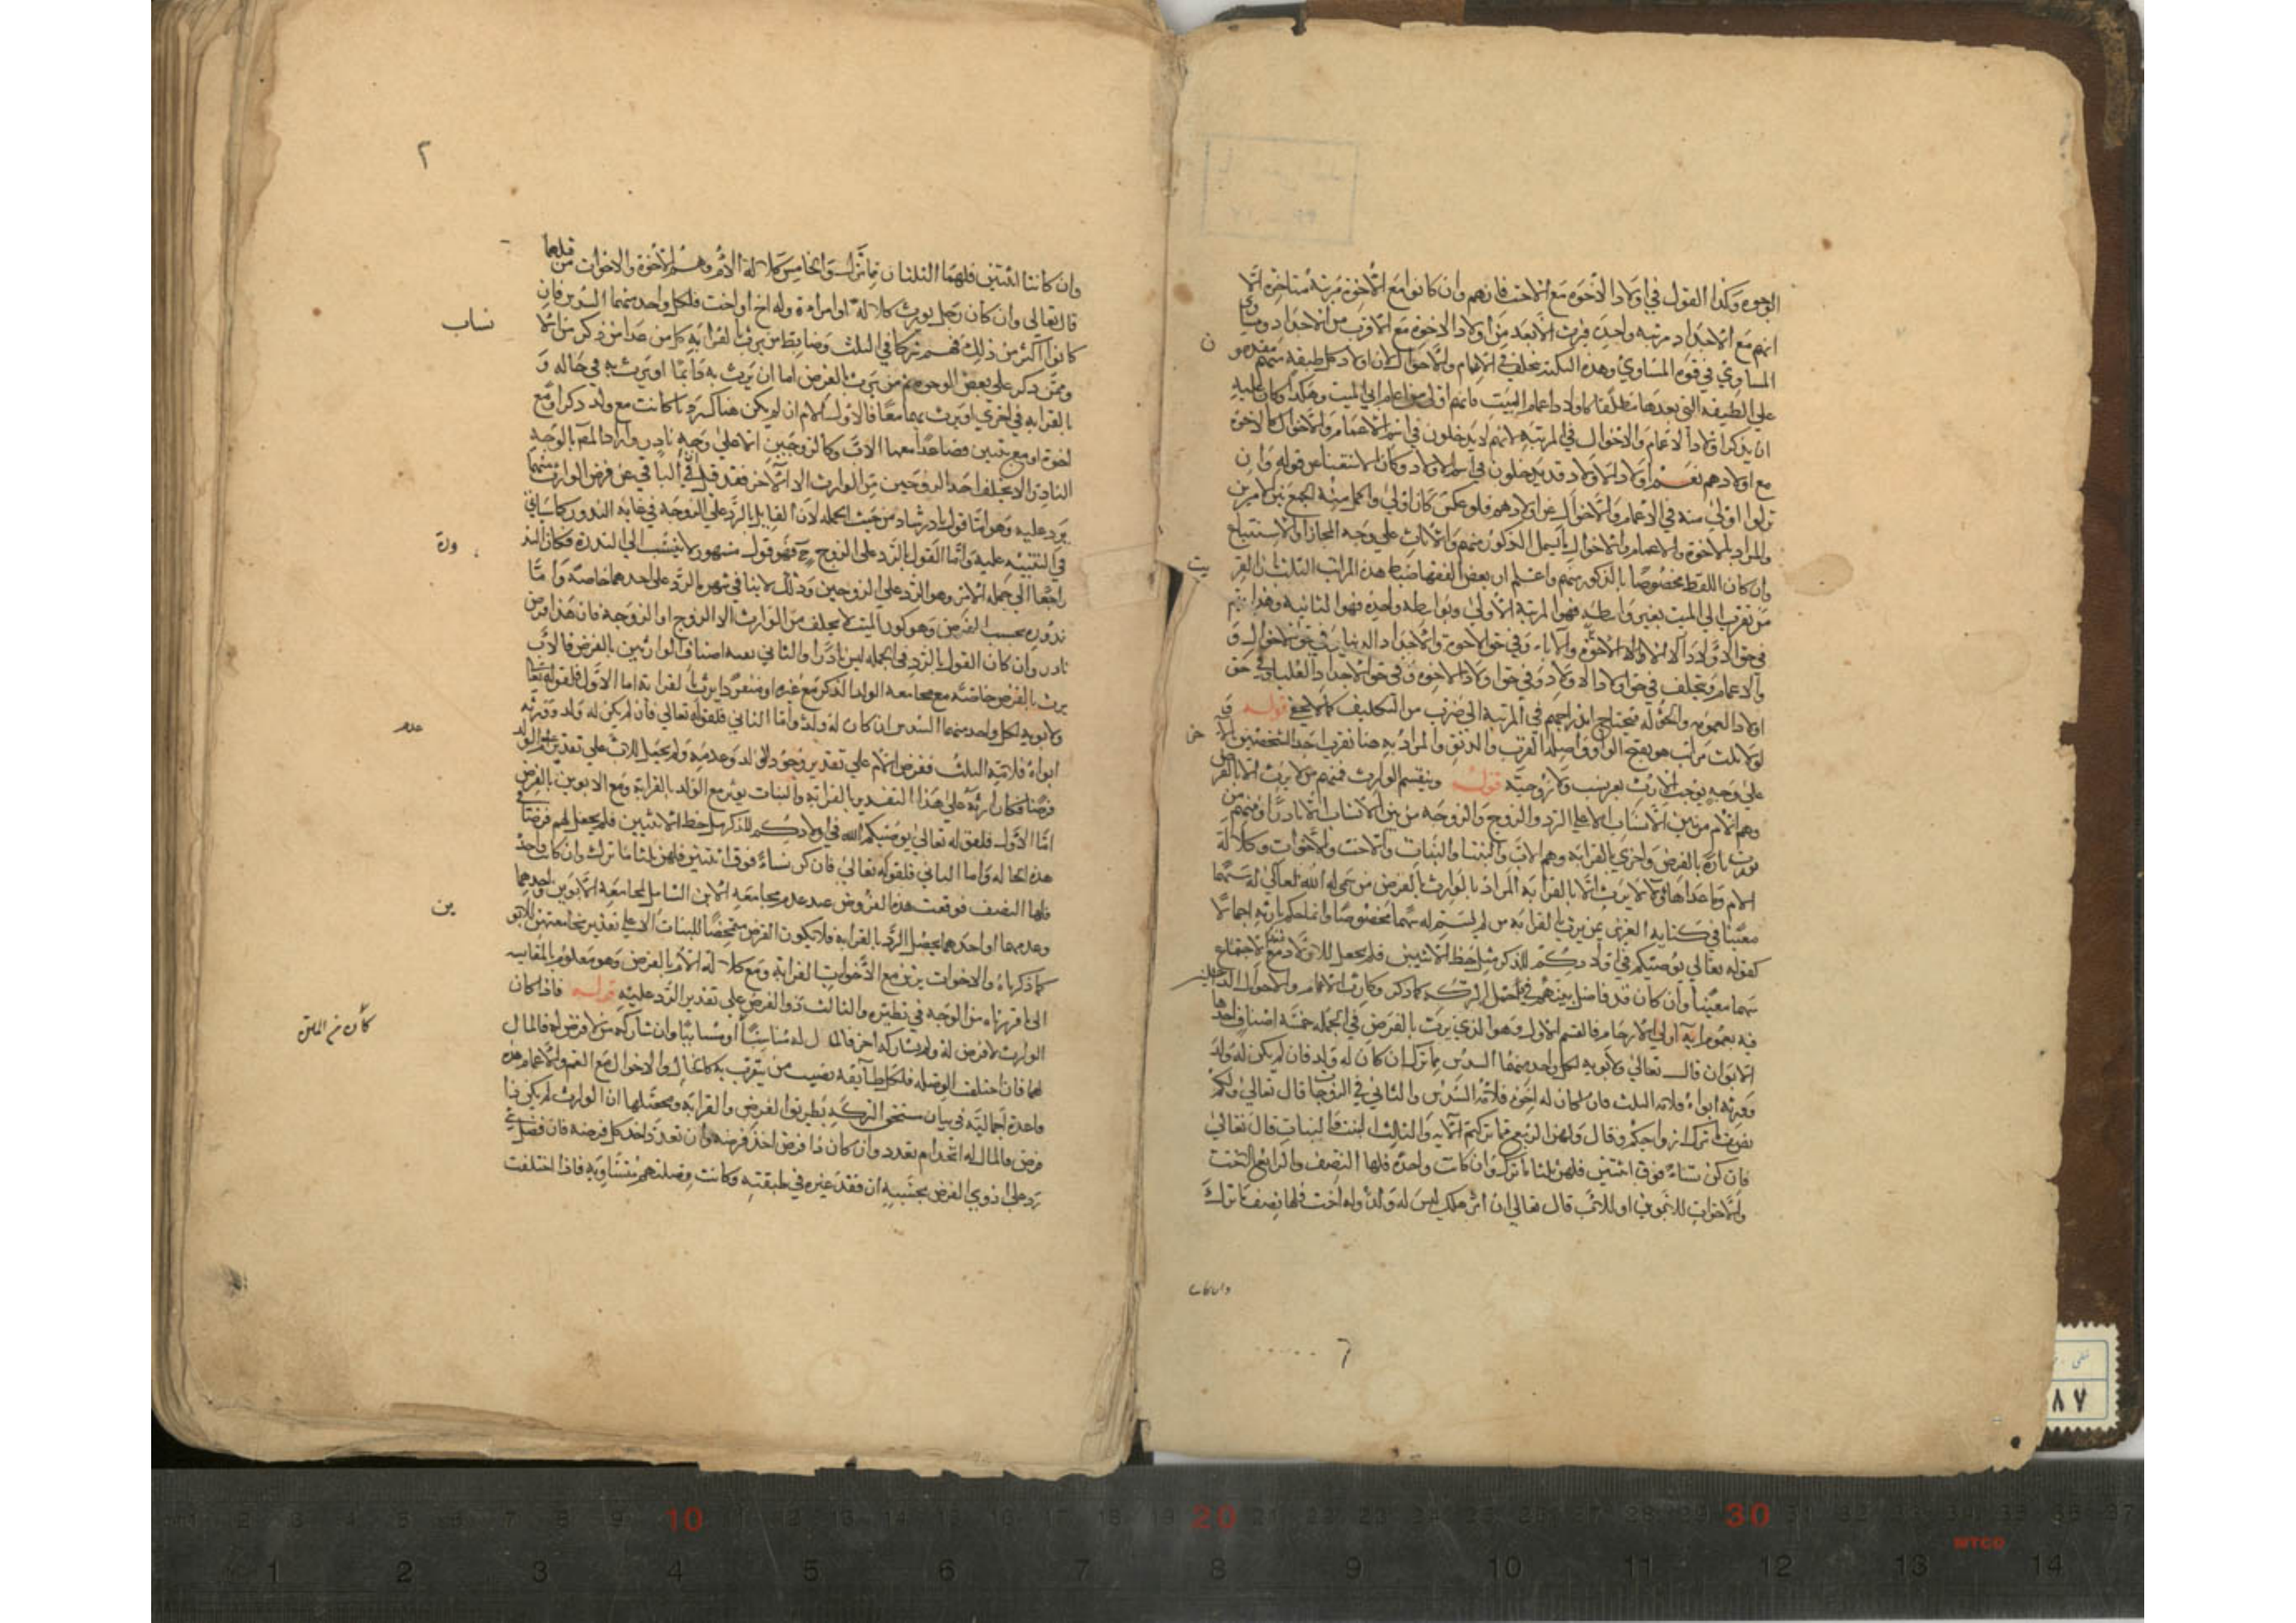 الوجوه وكذا القول في اولاد الاخوه مع الاخت فانهم وان كانوا مع الاخوة مرتبة متاخرة الا
انهم مع الاجداد مرتبه واحدة فيرث الابعد من اولاد الاخوة مع الاقرب من الاجداد ومساوي
المساوي في قوة المساوي وهذه النكتة تختلف في الاعمام والاخوال لان اولاد كل طبقة منهم مقدمون
على الطبقة التي بعدها مطلقا كاولاد اعمام الميت فانهم اولى من اعمام ابي الميت وهكذا وكان عليه
ان يذكر اولاد الاعمام والاخوال في المرتبة لانهم لا يدخلون في اسم الاعمام والاخوال كالاخوة
مع اولادهم نعم اولاد الاولاد قد يدخلون في اسم الاولاد وكان الاستغناء عن قوله وان
نزلوا اولى منه في الاعمام والاخوال عن اولادهم فلو عكس كان اولى واكمل منه الجمع بين الامرين
والمراد بالاخوة والاعمام والاخوال ما يشمل الذكور منهم والاناث على وجه المجاز او الاستتباع
وان كان اللفظ مخصوصا بالذكور منهم واعلم ان بعض الفقها ضبط هذه المراتب الثلث بان القريب
من تقرب الى الميت بغير واسطة فهو المرتبة الاولى وبواسطة واحدة فهو الثانية وهذا يتم
في حق وفي حق الاخوة والاجداد الدنيا وفي حق الاخوال و
والاعمام ويختلف في حق اولاد الاولاد وفي حق اولاد الاخوة وفي حق الاجداد العليا وفي حق
اولاد العمومه والخؤله فيحتاج ادراجهم في المرتبة الى ضرب من التكليف كما لا يخفى قوله
الولا ثلث مراتب هو بفتح الواو واصله القرب والدنو والمراد به هنا تقرب احد الشخصين بالاخر
على وجه يوجب الارث بغير نسب ولا زوجية قوله وينقسم الوارث فمنهم من لا يرث الا بالفرض
وهم الام من بين الانساب الا على الرد والزوج والزوجه من بين الاسباب الا نادرا ومنهم من
يرث تارة بالفرض واخرى بالقرابة وهم الاب والبنت والبنات والاخت والاخوات وكلالة
الام وما عداها ولا يرث الا بالقرابة المراد بالوارث بالفرض من سمى له الله تعالى له سهما
معينا في كتابه العزيز بمن يرث بالقرابة من لم يسم له سهما مخصوصا وانما حكم بارثه اجمالا
كقوله تعالى يوصيكم الله في اولادكم للذكر مثل حظ الانثيين فلم يجعل للاولاد مع الاجتماع
سهما معينا وان كان قد فاضل بينهم في اصل التركة كما ذكر وكارث الاعمام والاخوال الداخلين
فيه بعموم اية اولي الارحام فالقسم الاول وهو الذي يرث بالفرض في الجملة خمسة اصناف احدها
الابوان قال تعالى ولابويه لكل واحد منهما السدس مما ترك ان كان له ولد فان لم يكن له ولد
وورثه ابواه فلامه الثلث فان كان له اخوة فلامه السدس والثاني الزوجان قال تعالى ولكم
نصف ما ترك ازواجكم وقال ولهن الربع مما تركتم الاية والثالث البنت والبنات قال تعالى
فان كن نساء فوق اثنتين فلهن ثلثا ما ترك وان كانت واحدة فلها النصف والرابع الاخت
والاخوات للابوين او للاب قال تعالى ان امرؤ هلك ليس له ولد وله اخت فلها نصف ما ترك
ن
يت
خر
وان كانت
٦
٢
وان كانتا اثنتين فلهما الثلثان مما ترك والخامس كلالة الام وهم الاخوة والاخوات من قبلها
قال تعالى وان كان رجل يورث كلالة او امراءة وله اخ او اخت فلكل واحد منهما السدس فان
كانوا اكثر من ذلك فهم شركا في الثلث وضابط من يرث بالقرابة كل من عدا من ذكر من الانساب
وممن ذكر على بعض الوجوه ثم من يرث بالفرض اما ان يرث به دائما او يرث به في حاله و
بالقرابة في اخرى او يرث بهما معا فالاول كالام ان لم يكن هناك رد كما كانت مع ولد ذكر او مع
اخوة او مع بنتين فصاعدا معها الاب وكالزوجين الا على وجه نادر واراد المصنف بالوجه
النادر ان لا يخلف احد الزوجين من الوارث الا الاخر فقد قيل في الباقي عن فرض الوارث منهما
يرد عليه وهو انما قول نادر شاذ من حيث الجملة لان القايل بالرد على الزوجة في غاية الندور كما سياتي
في التنبيه عليه واما القول بالرد على الزوج فهو قول مشهور لا ينسب الى الندرة فكان الندور
راجعا الى جملة الامر وهو الرد على الزوجين وذلك لا ينافي شهرة الرد على احدهما خاصة واما
ندوره بحسب الفرض وهو كون الميت لا يخلف من الوارث الا الزوج او الزوجة فان هذا فرض
نادر وان كان القول بالرد في الجملة ليس نادرا والثاني بقيه اصناف الوارثين بالفرض فالاب
يرث بالفرض خاصة مع مجامعة الولد الذكر مع غيره او منفردا يرث بالقرابة اما الاول فلقوله تعالى
ولابويه لكل واحد منهما السدس ان كان له ولد واما الثاني فلقوله تعالى فان لم يكن له ولد وورثه
ابواه فلامه الثلث ففرض الام على تقدير وجود الولد وعدمه ولم يجعل للاب على تقدير عدم الولد
فرضا فكان ارثه على هذا التقدير بالقرابة والبنات يرثن مع الولد بالقرابة ومع الابوين بالفرض
اما الاول فلقوله تعالى يوصيكم الله في اولادكم للذكر مثل حظ الانثيين فلم يجعل لهم فرضا في
هذه الحاله واما الثاني فلقوله تعالى فان كن نساء فوق اثنتين فلهن ثلثا ما ترك وان كانت واحدة
فلها النصف فوقعت هذه الفروض عند عدم مجامعة الابن الشامل لمجامعة الابوين واحدهما
وعدمهما او احدهما يحصل الرد بالقرابة فلا يكون الفرض متمحضا للبنات الا على تقدير مجامعتهن للابوين
كما ذكرناه والاخوات يرثن مع الاخوات بالقرابة ومع كلالة الام بالفرض وهو معلوم بالمقايسه
الى ما قررناه من الوجه في نظيره والثالث ذو الفرض على تقدير الرد عليه قوله فاذا كان
الوارث لا فرض له ولم يشاركه اخر فالمال له مناسبا او مسابيا وان شاركه من لا فرض له فالمال
لهما فان اختلف الوصله فلكل طايفة نصيب من يتقرب به كالخال والاخوال مع العم والاعمام هذه
قاعدة اجمالية في بيان مستحق التركة بطريق الفرض والقرابة ومحصلها ان الوارث لم يكن ذا
فرض فالمال له اتحد ام تعدد وان كان ذا فرض اخذ فرضه وان تعدد اخذ كل فرضه فان فضل شي
رد على ذوي الفرض بحسبه ان فقد غيره في طبقته وكانت وصلتهم متساوية فاذا اختلفت
نساب
ورة
عدم
ين